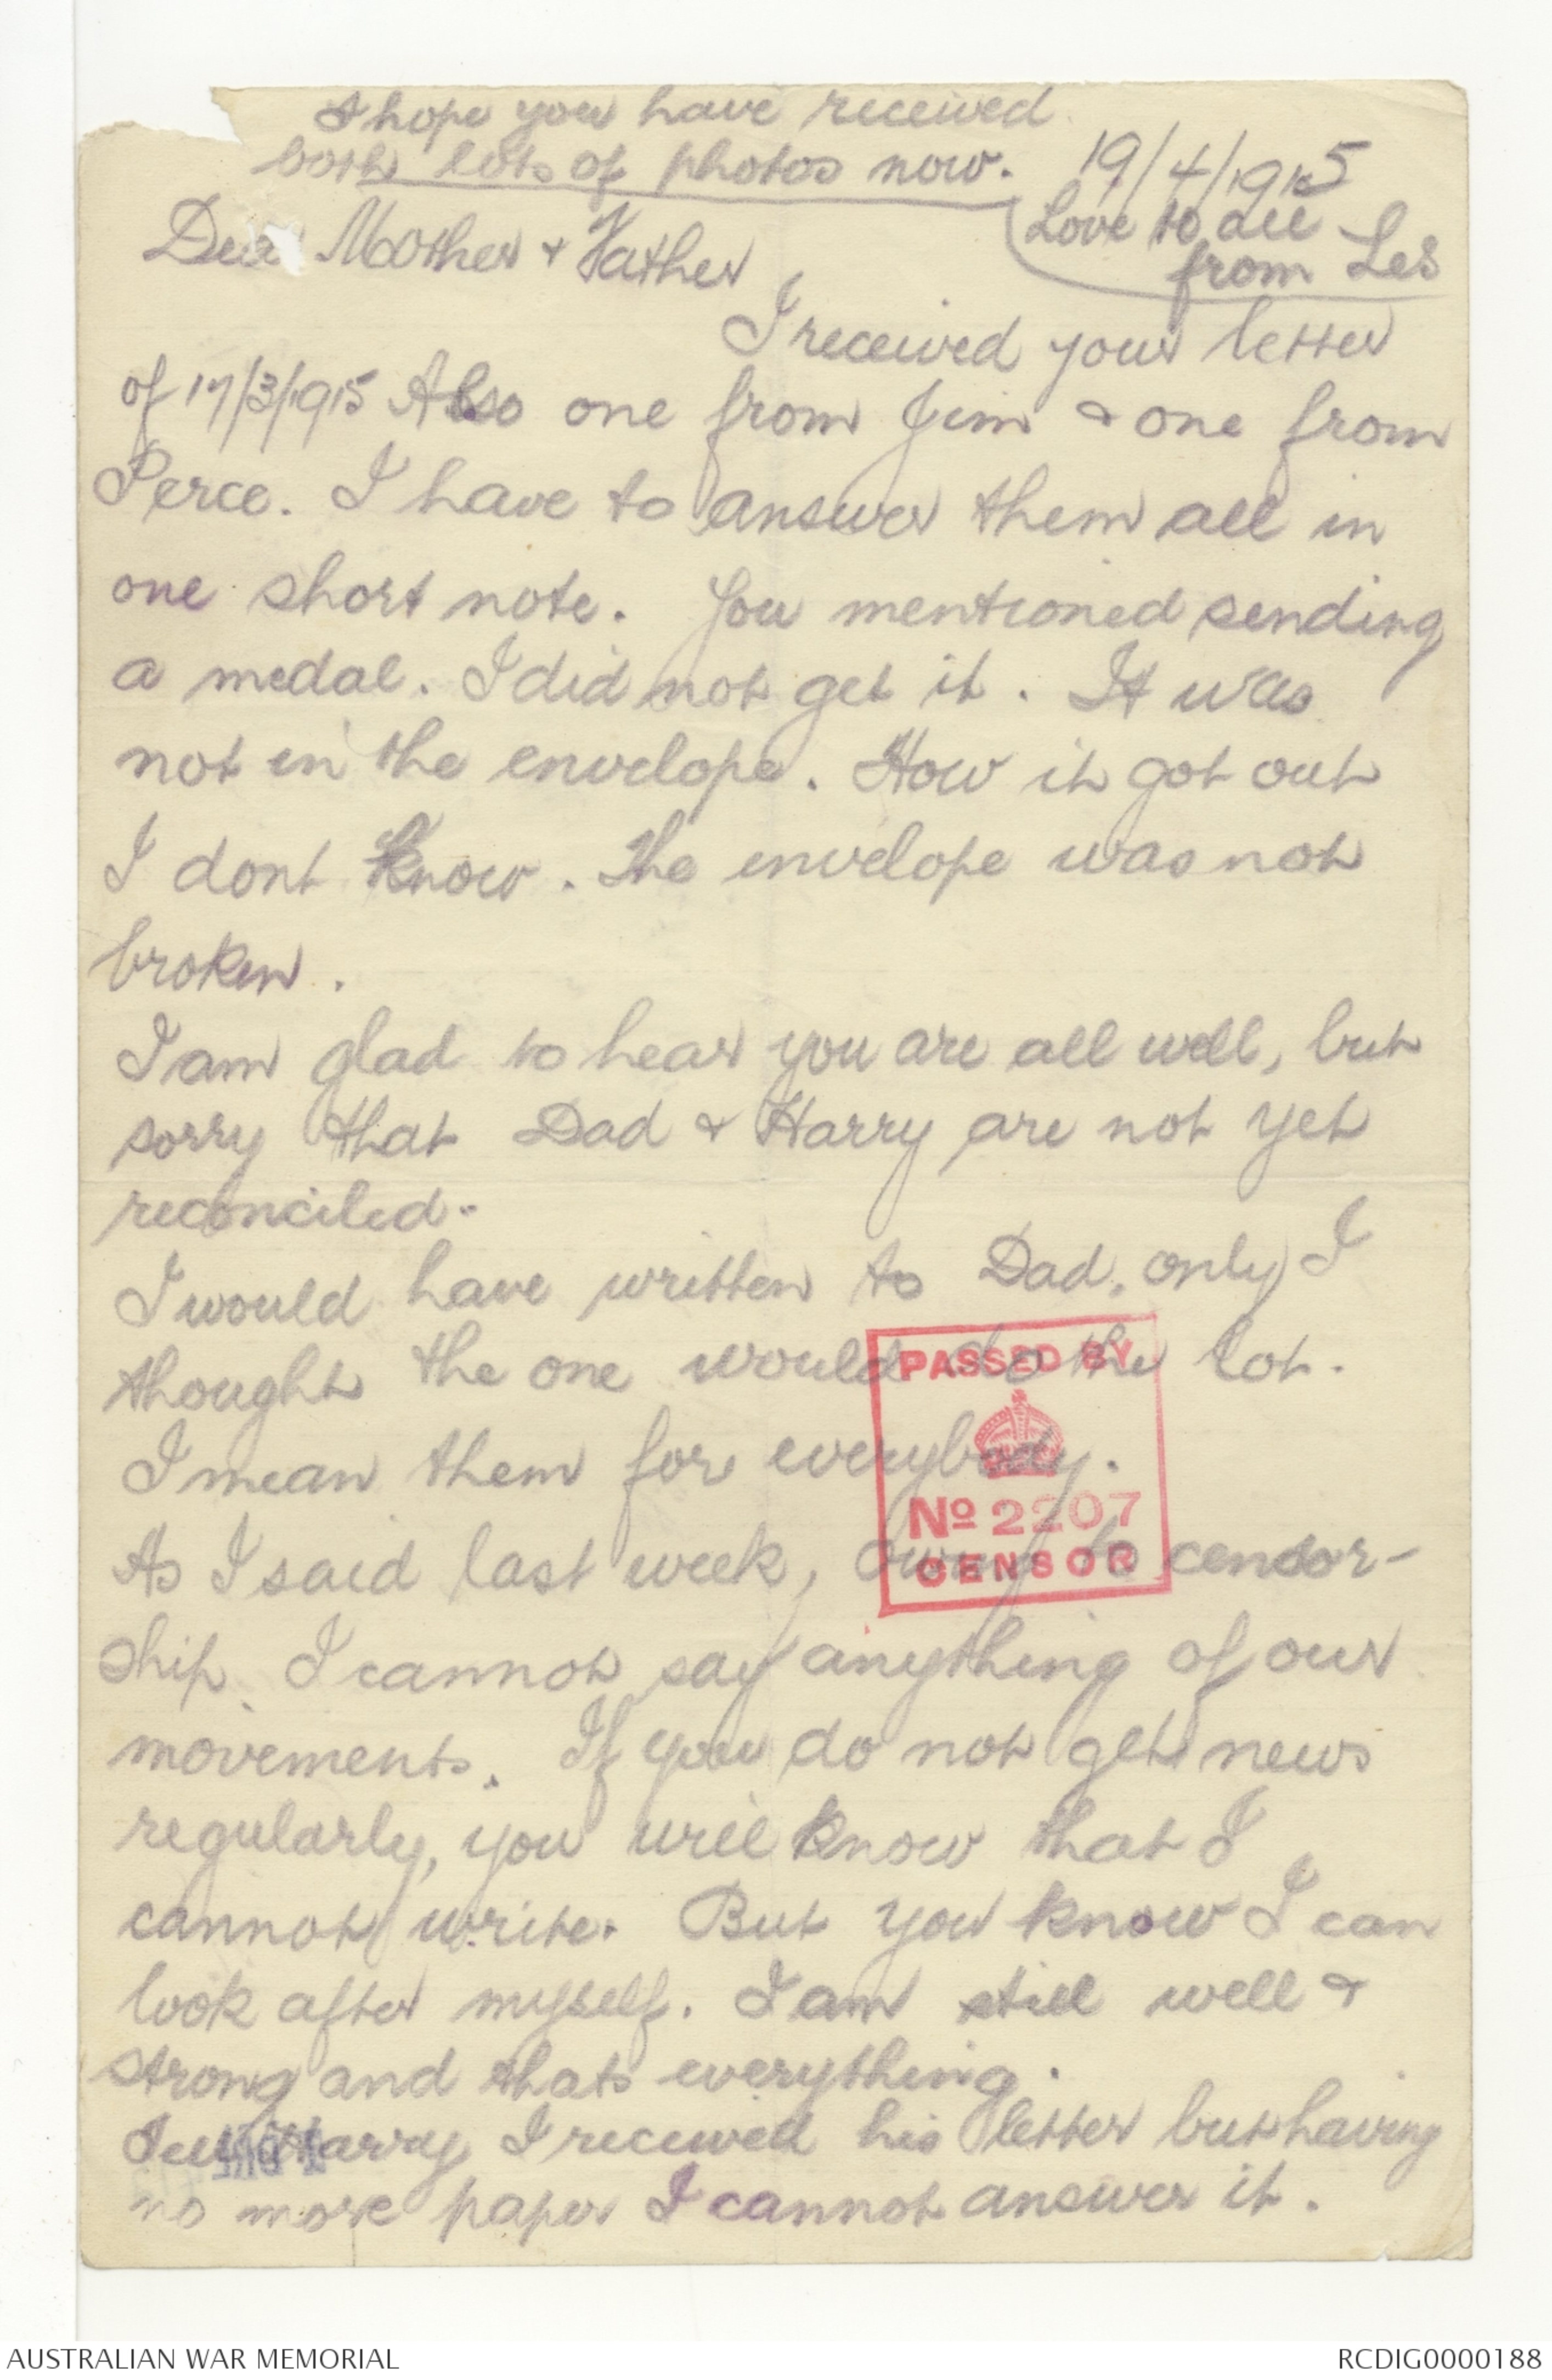 I hope you have received
both lots of photos now.
19/4/1915
Love to all
from Les
Dear Mother & Father
I received your letter
of 17/3/1915 Also one from Jim & one from
Perce. I have to answer them all in
one short note. You mentioned sending
a medal. I did not get it. It was
not in the envelope. How it got out
I dont know. The envelope was not
broken.
I am glad to hear you are all well, but
sorry that Dad & Harry are not yet
reconciled.
I would have written to Dad, only I
thought the one would do the lot.
I mean them for everybody.
As I said last week, owing to censor-
ship I cannot say anything of our
movements. If you do not get news
regularly, you will know that I
cannot write. But you know I can
look after myself. I am still well &
strong and thats everything.
Tell Harry I received his letter but having
no more paper I cannot answer it.
PASSED BY
No 2207
CENSOR
AUSTRALIAN WAR MEMORIAL
RCDIG0000188